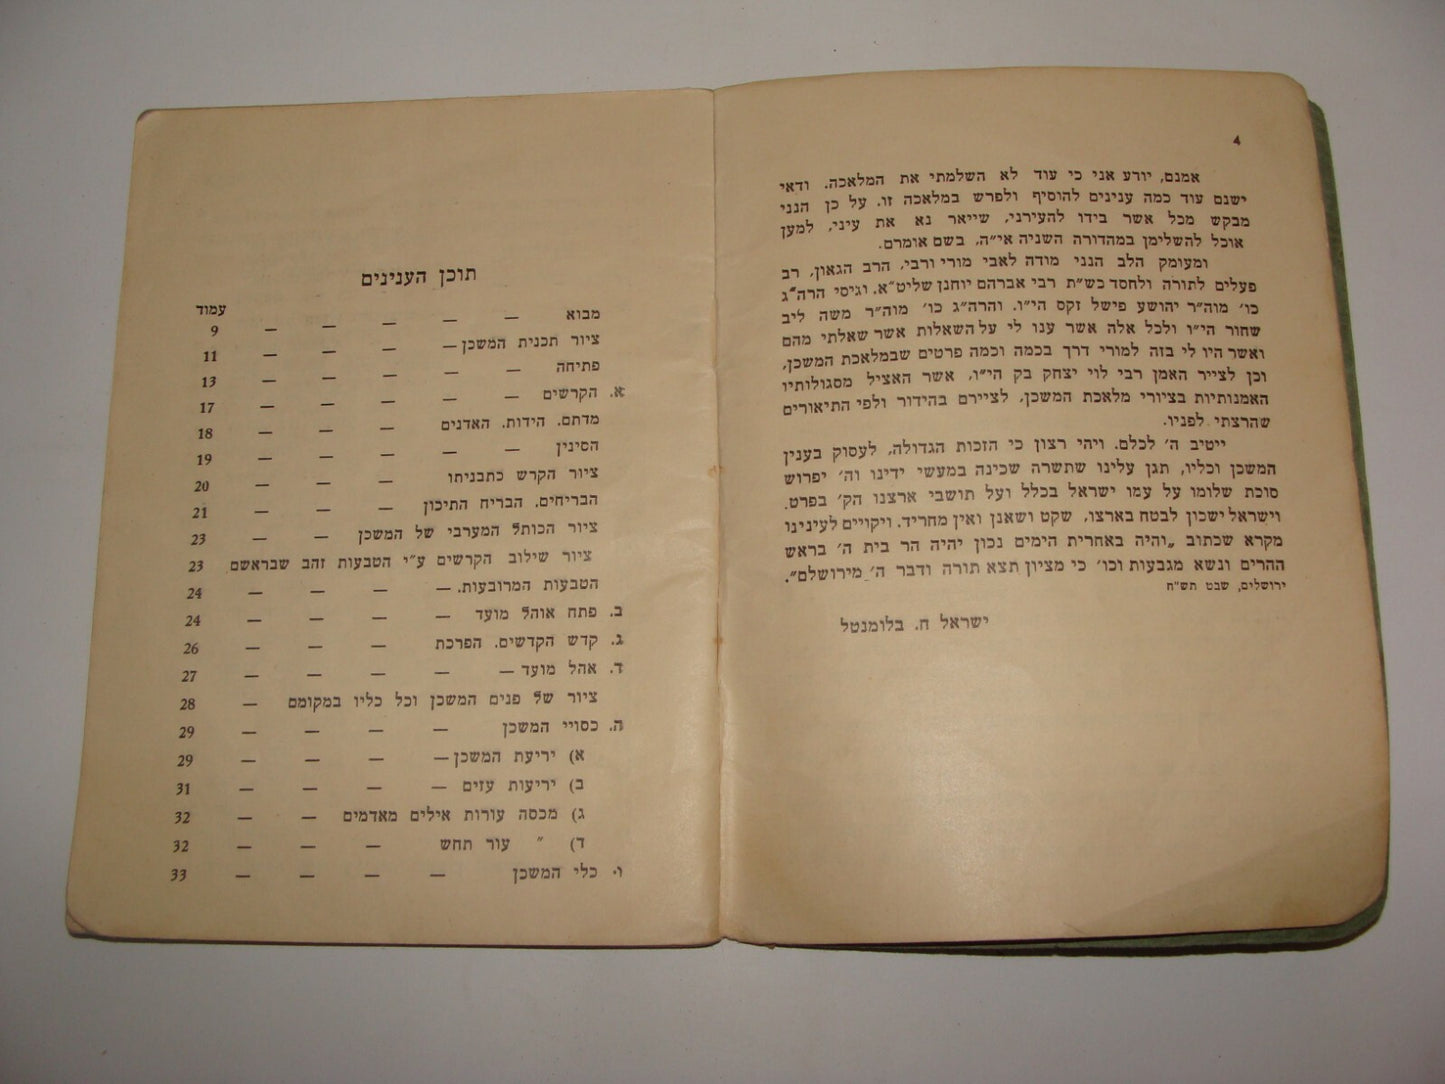 4
אמנם, יודע אני כי עוד לא השלמתי את המלאכה. ודאי
ישנם עוד כמה ענינים להוסיף ולפרש במלאכה זו. על כן הנני
מבקש מכל אשר בידו להעירני, שייאר נא את עיני, למען
אוכל להשלימן במהדורה השניה אי״ה, בשם אומרם.
ומעומק הלב הנני מודה לאבי מורי ורבי, הרב הגאון, רב
פעלים לתורה ולחסד כש״ת רבי אברהם יוחנן שליט״א. וגיסי הרה״ג
כו׳ מוה״ר יהושע פישל זקס הי״ו. והרה״ג כו׳ מוה״ר משה ליב
שחור הי״ו ולכל אלה אשר ענו לי על השאלות אשר שאלתי מהם
ואשר היו לי בזה למורי דרך בכמה וכמה פרטים שבמלאכת המשכן,
וכן לצייר האמן רבי לוי יצחק בק הי״ו, אשר האציל מסגולותיו
האמנותיות בציורי מלאכת המשכן, לציירם בהידור ולפי התיאורים
שהרצתי לפניו.
ייטיב ה׳ לכלם. ויהי רצון כי הזכות הגדולה, לעסוק בענין
המשכן וכליו, תגן עלינו שתשרה שכינה במעשי ידינו וה׳ יפרוש
סוכת שלומו על עמו ישראל בכלל ועל תושבי ארצנו הק׳ בפרט.
וישראל ישכון לבטח בארצו, שקט ושאנן ואין מחריד. ויקויים לעינינו
מקרא שכתוב „והיה באחרית הימים נכון יהיה הר בית ה׳ בראש
ההרים ונשא מגבעות וכו׳ כי מציון תצא תורה ודבר ה׳ מירושלם״.
ירושלים, שבט תש״ח
ישראל ח. בלומנטל
תוכן הענינים
עמוד
מבוא — — — — — 9
ציור תכנית המשכן — — — — 11
פתיחה — — — — — 13
א. הקרשים — — — — — 17
מדתם. הידות. האדנים — — — 18
הסינין — — — — — 19
ציור הקרש כתבניתו — — — 20
הבריחים. הבריח התיכון — — — 21
ציור הכותל המערבי של המשכן — — 23
ציור שילוב הקרשים ע״י הטבעות זהב שבראשם 23
הטבעות המרובעות. — — — — 24
ב. פתח אוהל מועד — — — — 24
ג. קדש הקדשים. הפרכת — — — 26
ד. אהל מועד — — — — — 27
ציור של פנים המשכן וכל כליו במקומם — 28
ה. כסויי המשכן — — — — 29
א) יריעת המשכן — — — — 29
ב) יריעות עזים — — — — 31
ג) מכסה עורות אילים מאדמים — — 32
ד) ״ עור תחש — — — 32
ו. כלי המשכן — — — — 33